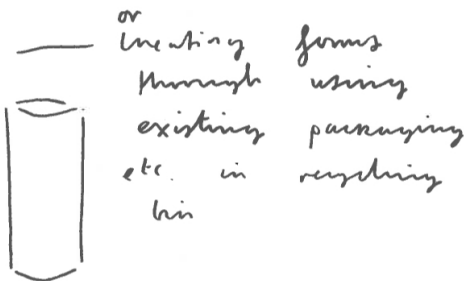 or
creating forms
through using
existing packaging
etc. in recycling
bin